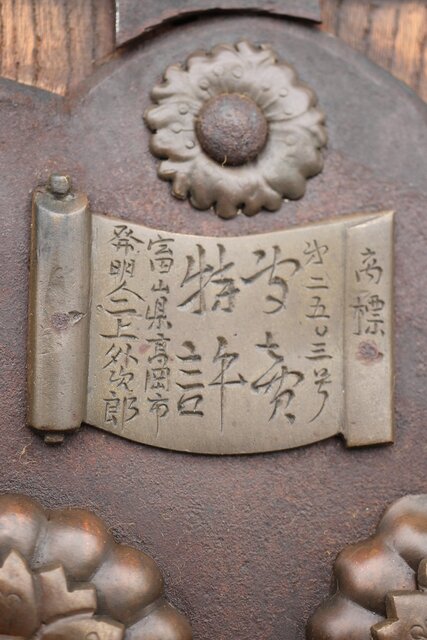 高標
第二五〇三号
専売
特許
富山県高岡市
発明人二上外次郎